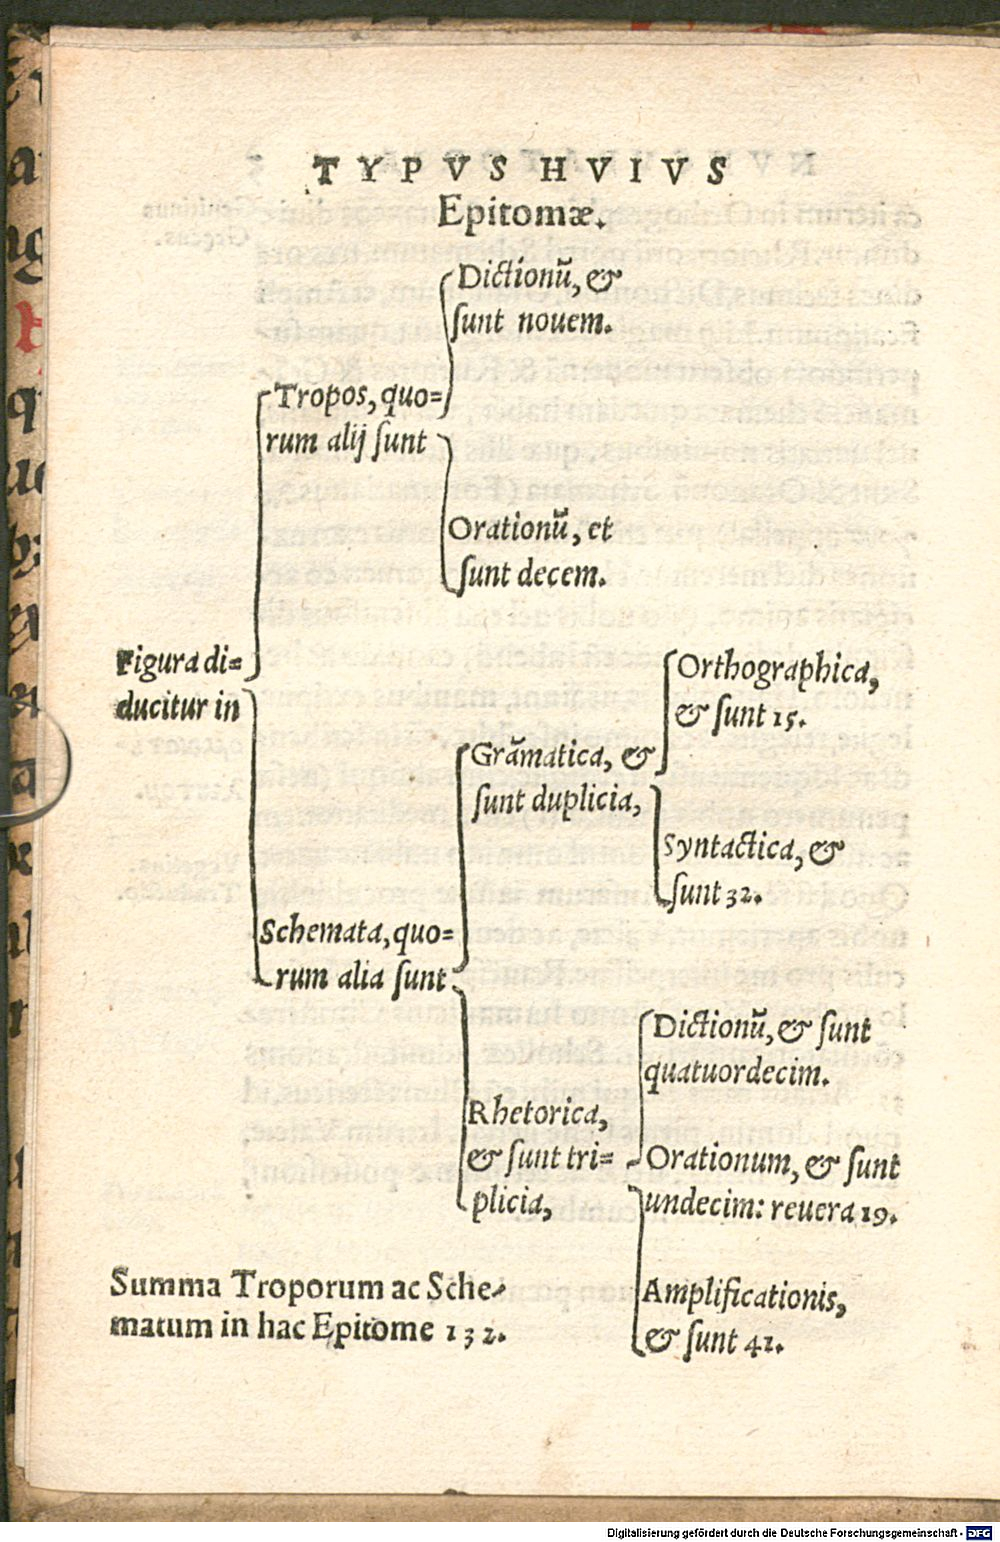 TYPVS HVIVS
Epitomæ.
Dictionũ, &
sunt nouem.
Tropos, quo=
rum alij sunt
Orationũ, et
sunt decem.
Figura di=
ducitur in
Orthographica,
& sunt 15.
Grãmatica, &
sunt duplicia,
Syntactica, &
sunt 32.
Schemata, quo=
rum alia sunt
Dictionũ, & sunt
quatuordecim.
Rhetorica,
& sunt tri=
plicia,
Orationum, & sunt
undecim: reuera 19.
Amplificationis,
& sunt 41.
Summa Troporum ac Sche-
matum in hac Epitome 132.
Digitalisierung gefördert durch die Deutsche Forschungsgemeinschaft - DFG